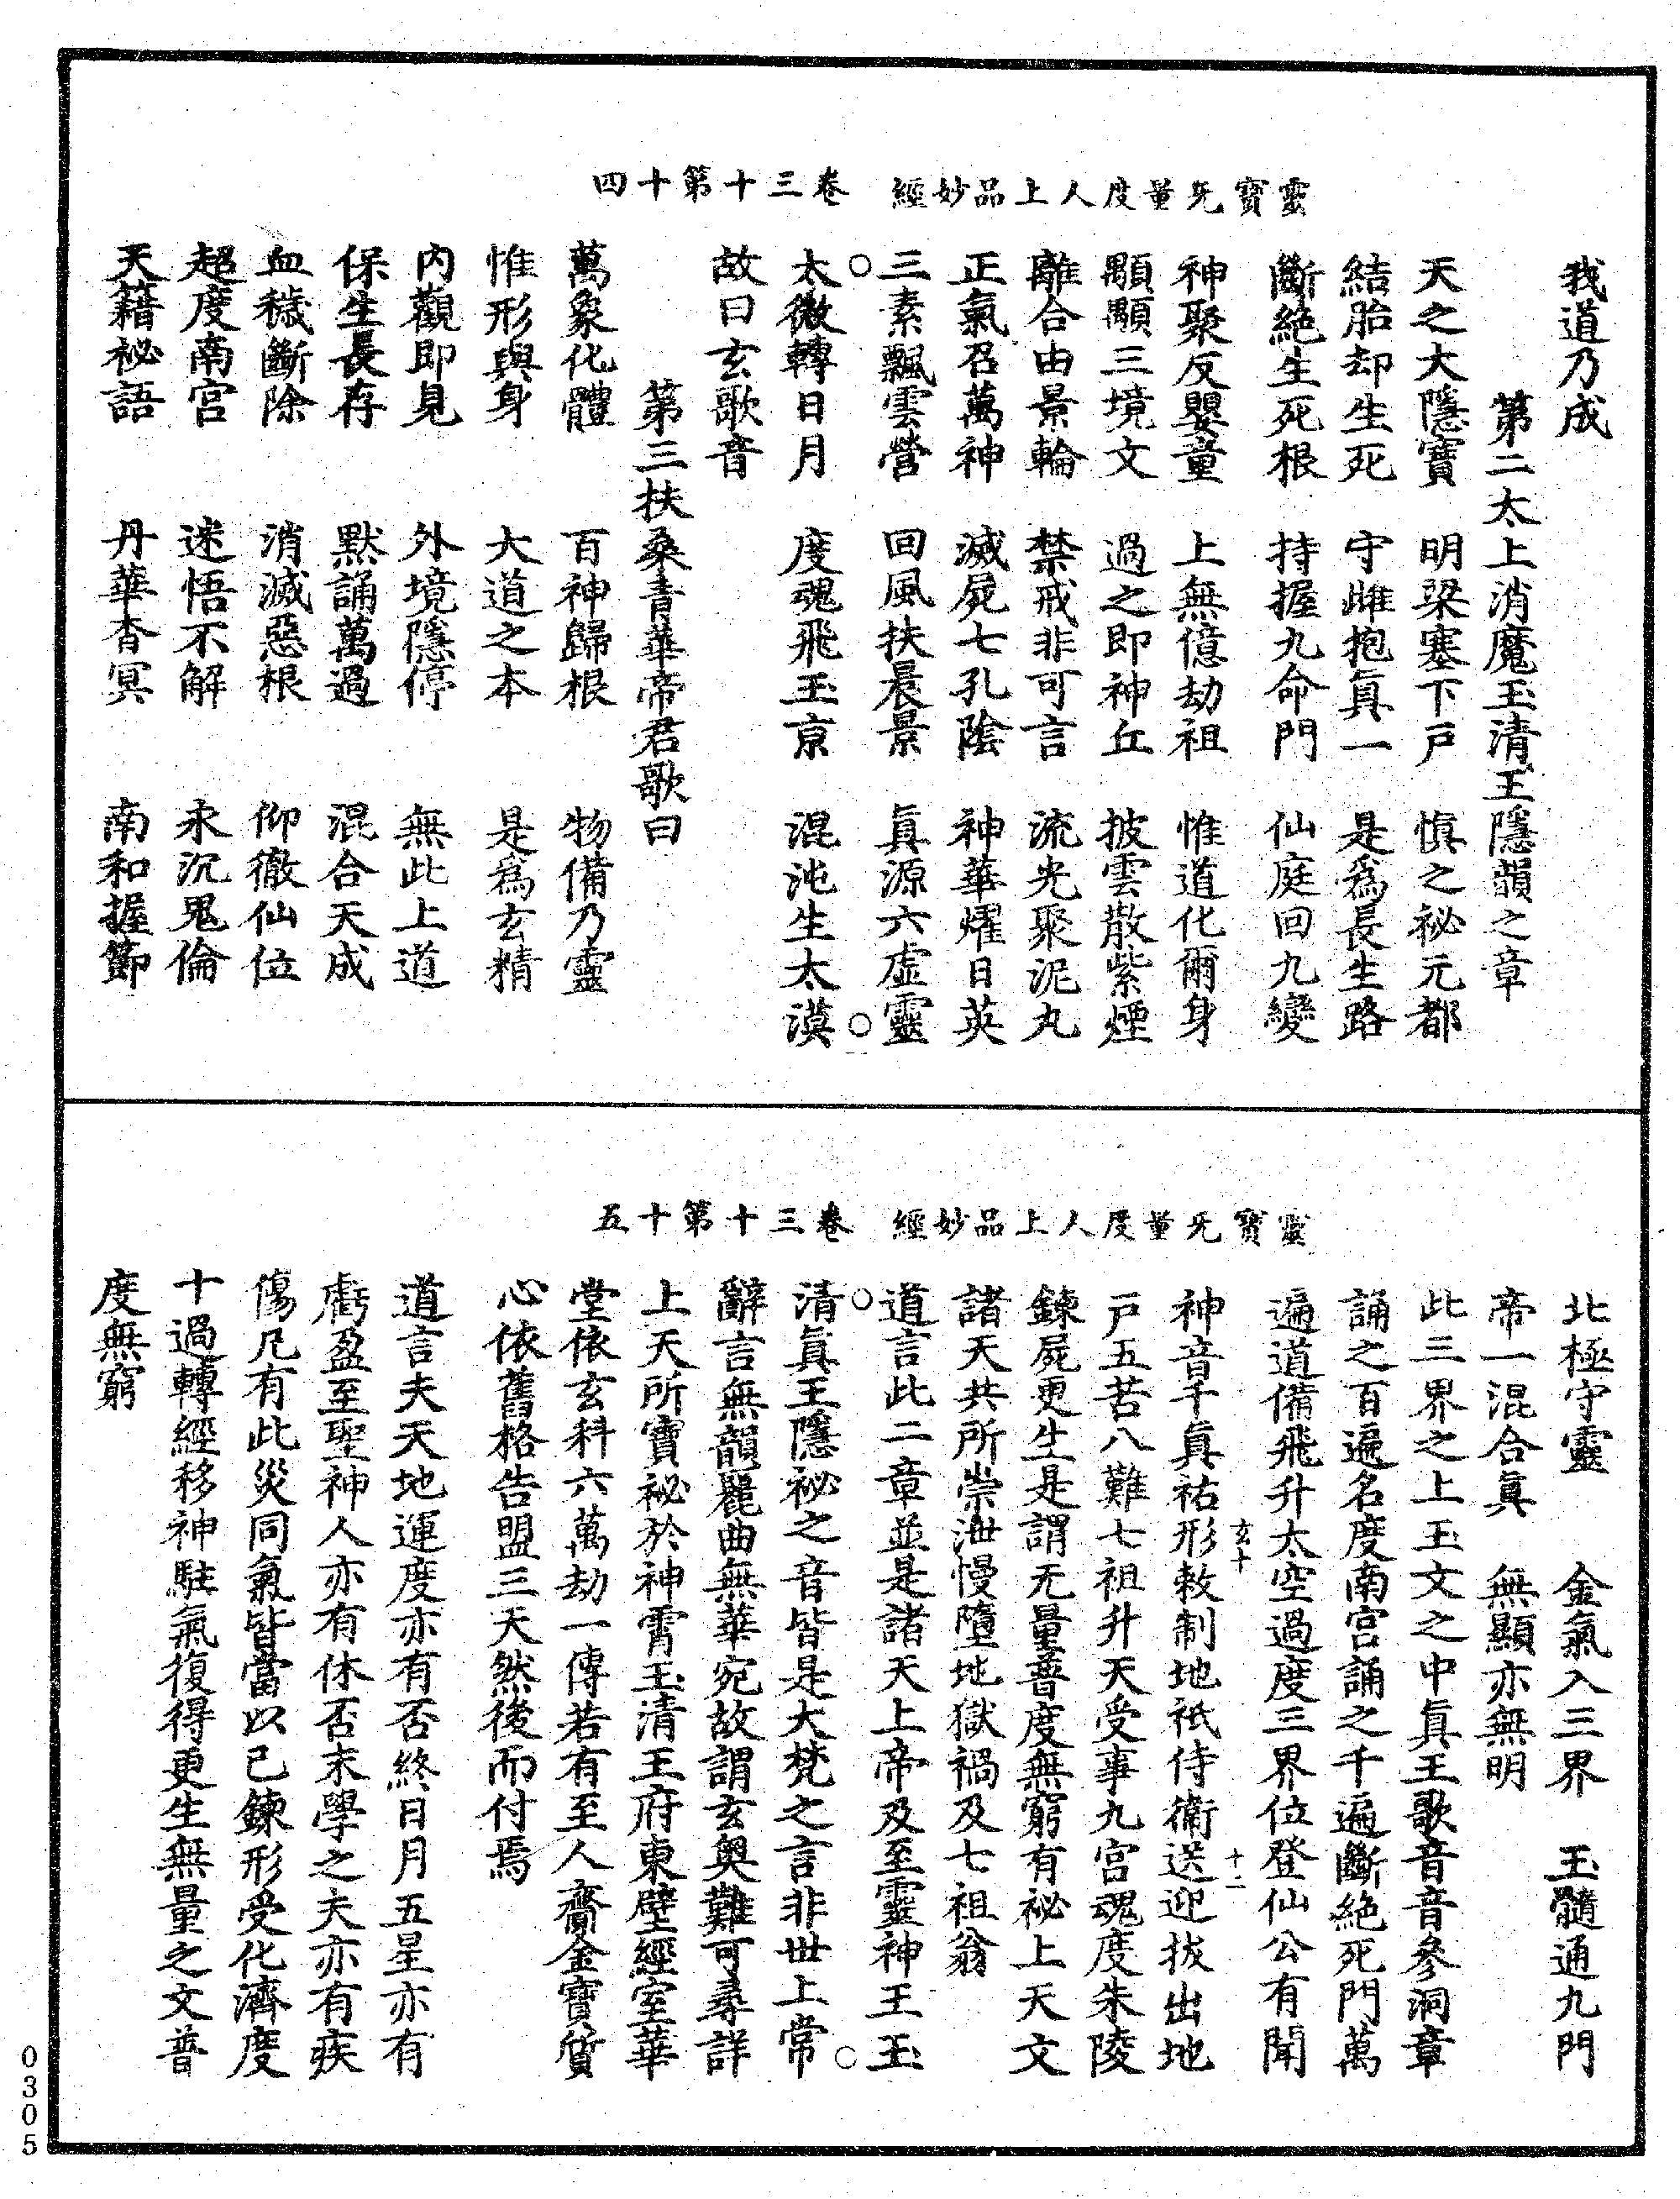 靈寶无量度人上品妙經 卷三十第十四
我道乃成
第二太上消魔玉清王隱韻之章
天之大隱寶 明梁塞下戶 慎之祕元都
結胎却生死 守雌抱真一 是爲長生路
斷絕生死根 持握九命門 仙庭回九變
神聚反嬰童 上無億劫祖 惟道化爾身
顒顒三境文 過之即神丘 披雲散紫煙
離合由景輪 禁戒非可言 流光聚泥丸
正氣召萬神 滅屍七孔陰 神華燿日英
三素飄雲營 回風扶晨景 真源六虛靈
太微轉日月 度魂飛玉京 混沌生太漠
故曰玄歌音
第三扶桑青華帝君歌曰
萬象化體 百神歸根 物備乃靈
惟形與身 大道之本 是爲玄精
內觀即見 外境隱停 無此上道
保生長存 默誦萬過 混合天成
血穢斷除 消滅惡根 仰徹仙位
超度南宮 迷悟不解 永沉鬼倫
天籍祕語 丹華杳冥 南和握節
靈寶无量度人上品妙經 卷三十第十五
北極守靈 金氣入三界 玉髓通九門
帝一混合真 無顯亦無明
此三界之上玉文之中真王歌音音參洞章
誦之百遍名度南宮誦之千遍斷絕死門萬
遍道備飛升太空過度三界位登仙公有聞
玄十 十二
神音千真祐形敕制地祇侍衛送迎拔出地
戶五苦八難七祖升天受事九宮魂度朱陵
鍊屍更生是謂无量普度無窮有祕上天文
諸天共所崇泄慢墮地獄禍及七祖翁
道言此二章並是諸天上帝及至靈神王玉
清真王隱祕之音皆是大梵之言非世上常
辭言無韻麗曲無華宛故謂玄奧難可尋詳
上天所寶祕於神霄玉清王府東壁經室華
堂依玄科六萬劫一傳若有至人齎金寶質
心依舊格告盟三天然後而付焉
道言夫天地運度亦有否終日月五星亦有
虧盈至聖神人亦有休否末學之夫亦有疾
傷凡有此災同氣皆當以已鍊形受化濟度
十過轉經移神駐氣復得更生無量之文普
度無窮
0305